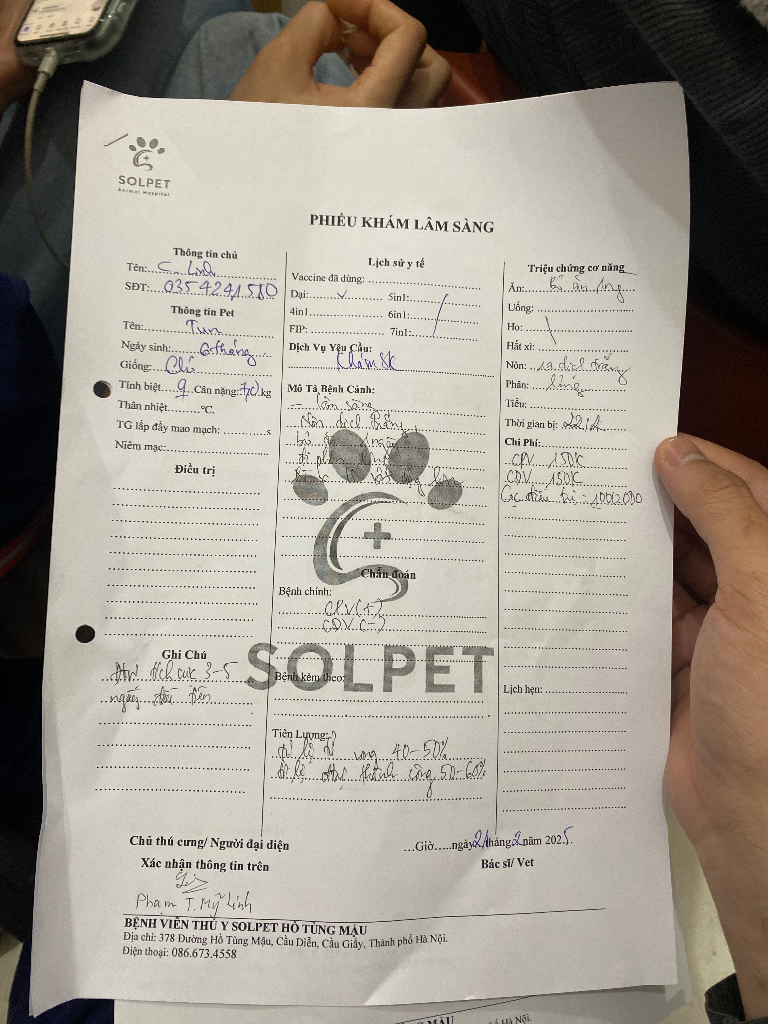 SOLPET
Animal Hospital
PHIẾU KHÁM LÂM SÀNG
Thông tin chủ
Tên: C. Linh
SĐT: 0354241580
Thông tin Pet
Tên: Tun
Ngày sinh: 6 tháng
Giống: Chó
Tính biệt Cân nặng: kg
Thân nhiệt °C.
TG lấp đầy mao mạch: s
Niêm mạc:
Điều trị
Ghi Chú
tích cực 3-5
ngày đầu tiên
Lịch sử y tế
Vaccine đã dùng:
Dại: 5in1:
4in1 6in1:
FIP: 7in1:
Dịch Vụ Yêu Cầu:
Khám SK
Mô Tả Bệnh Cảnh:
- Lâm sàng
Nôn dịch trắng
Chẩn đoán
Bệnh chính:
CPV (+)
CDV (-)
SOLPET
Bệnh kèm theo:
Tiên Lượng:
40-50%
thành công 50-60%
Triệu chứng cơ năng
Ăn: Bỏ ăn
Uống:
Ho:
Hắt xì:
Nôn: ra dịch trắng
Phân: lỏng
Tiểu:
Thời gian bị:
Chi Phí:
CPV 150K
CDV 150K
Cọc điều trị:
Lịch hẹn:
Chủ thú cưng/ Người đại diện
Xác nhận thông tin trên
Phạm T. Mỹ Linh
...Giờ.....ngày 21 tháng 2 năm 2025.
Bác sĩ/ Vet
BỆNH VIỆN THÚ Y SOLPET HỒ TÙNG MẬU
Địa chỉ: 378 Đường Hồ Tùng Mậu, Cầu Diễn, Cầu Giấy, Thành phố Hà Nội.
Điện thoại: 086.673.4558